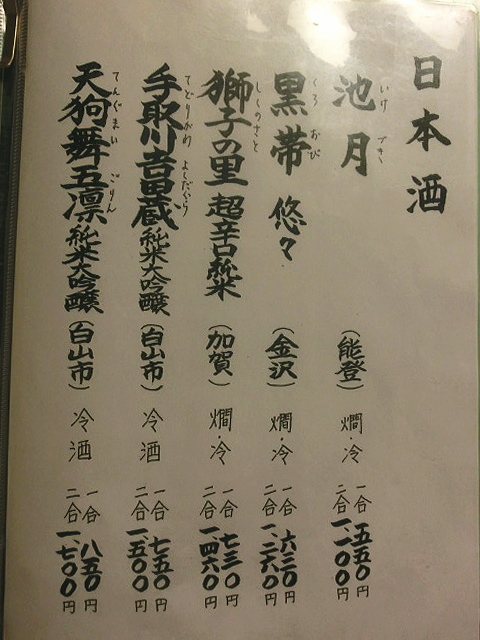 日本酒
いけ づき
池月 (能登) 燗・冷 一合 五五〇円
二合 一、一〇〇円
くろ おび
黒帯 悠々 (金沢) 燗・冷 一合 六三〇円
二合 一、二六〇円
しゝのさと
獅子の里 超辛口純米 (加賀) 燗・冷 一合 七三〇円
二合 一、四六〇円
てどりがわ よしだぐら
手取川吉田蔵 純米大吟醸 (白山市) 冷酒 一合 七五〇円
二合 一、五〇〇円
てんぐまい ごりん
天狗舞五凛 純米大吟醸 (白山市) 冷酒 一合 八五〇円
二合 一、七〇〇円